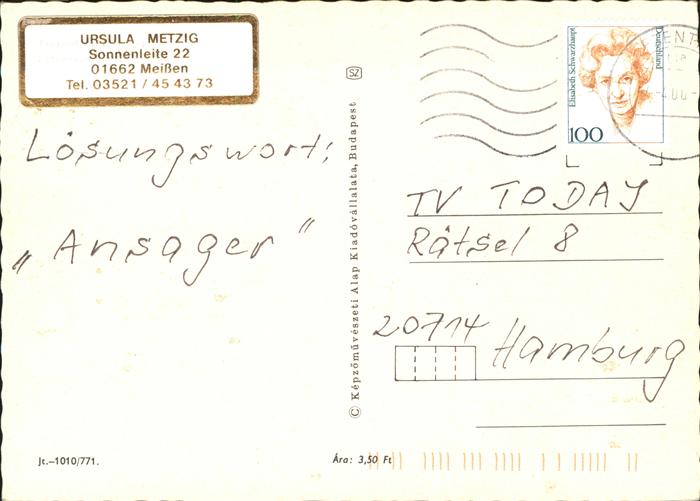 URSULA METZIG
Sonnenleite 22
01662 Meißen
Tel. 03521 / 45 43 73
Lösungswort:
„Ansager"
Jt.-1010/771.
Ára: 3,50 Ft
© Képzőművészeti Alap Kiadóvállalata, Budapest
SZ
Elisabeth Schwarzhaupt
Deutschland
100
TV TODAY
Rätsel 8
20714 Hamburg